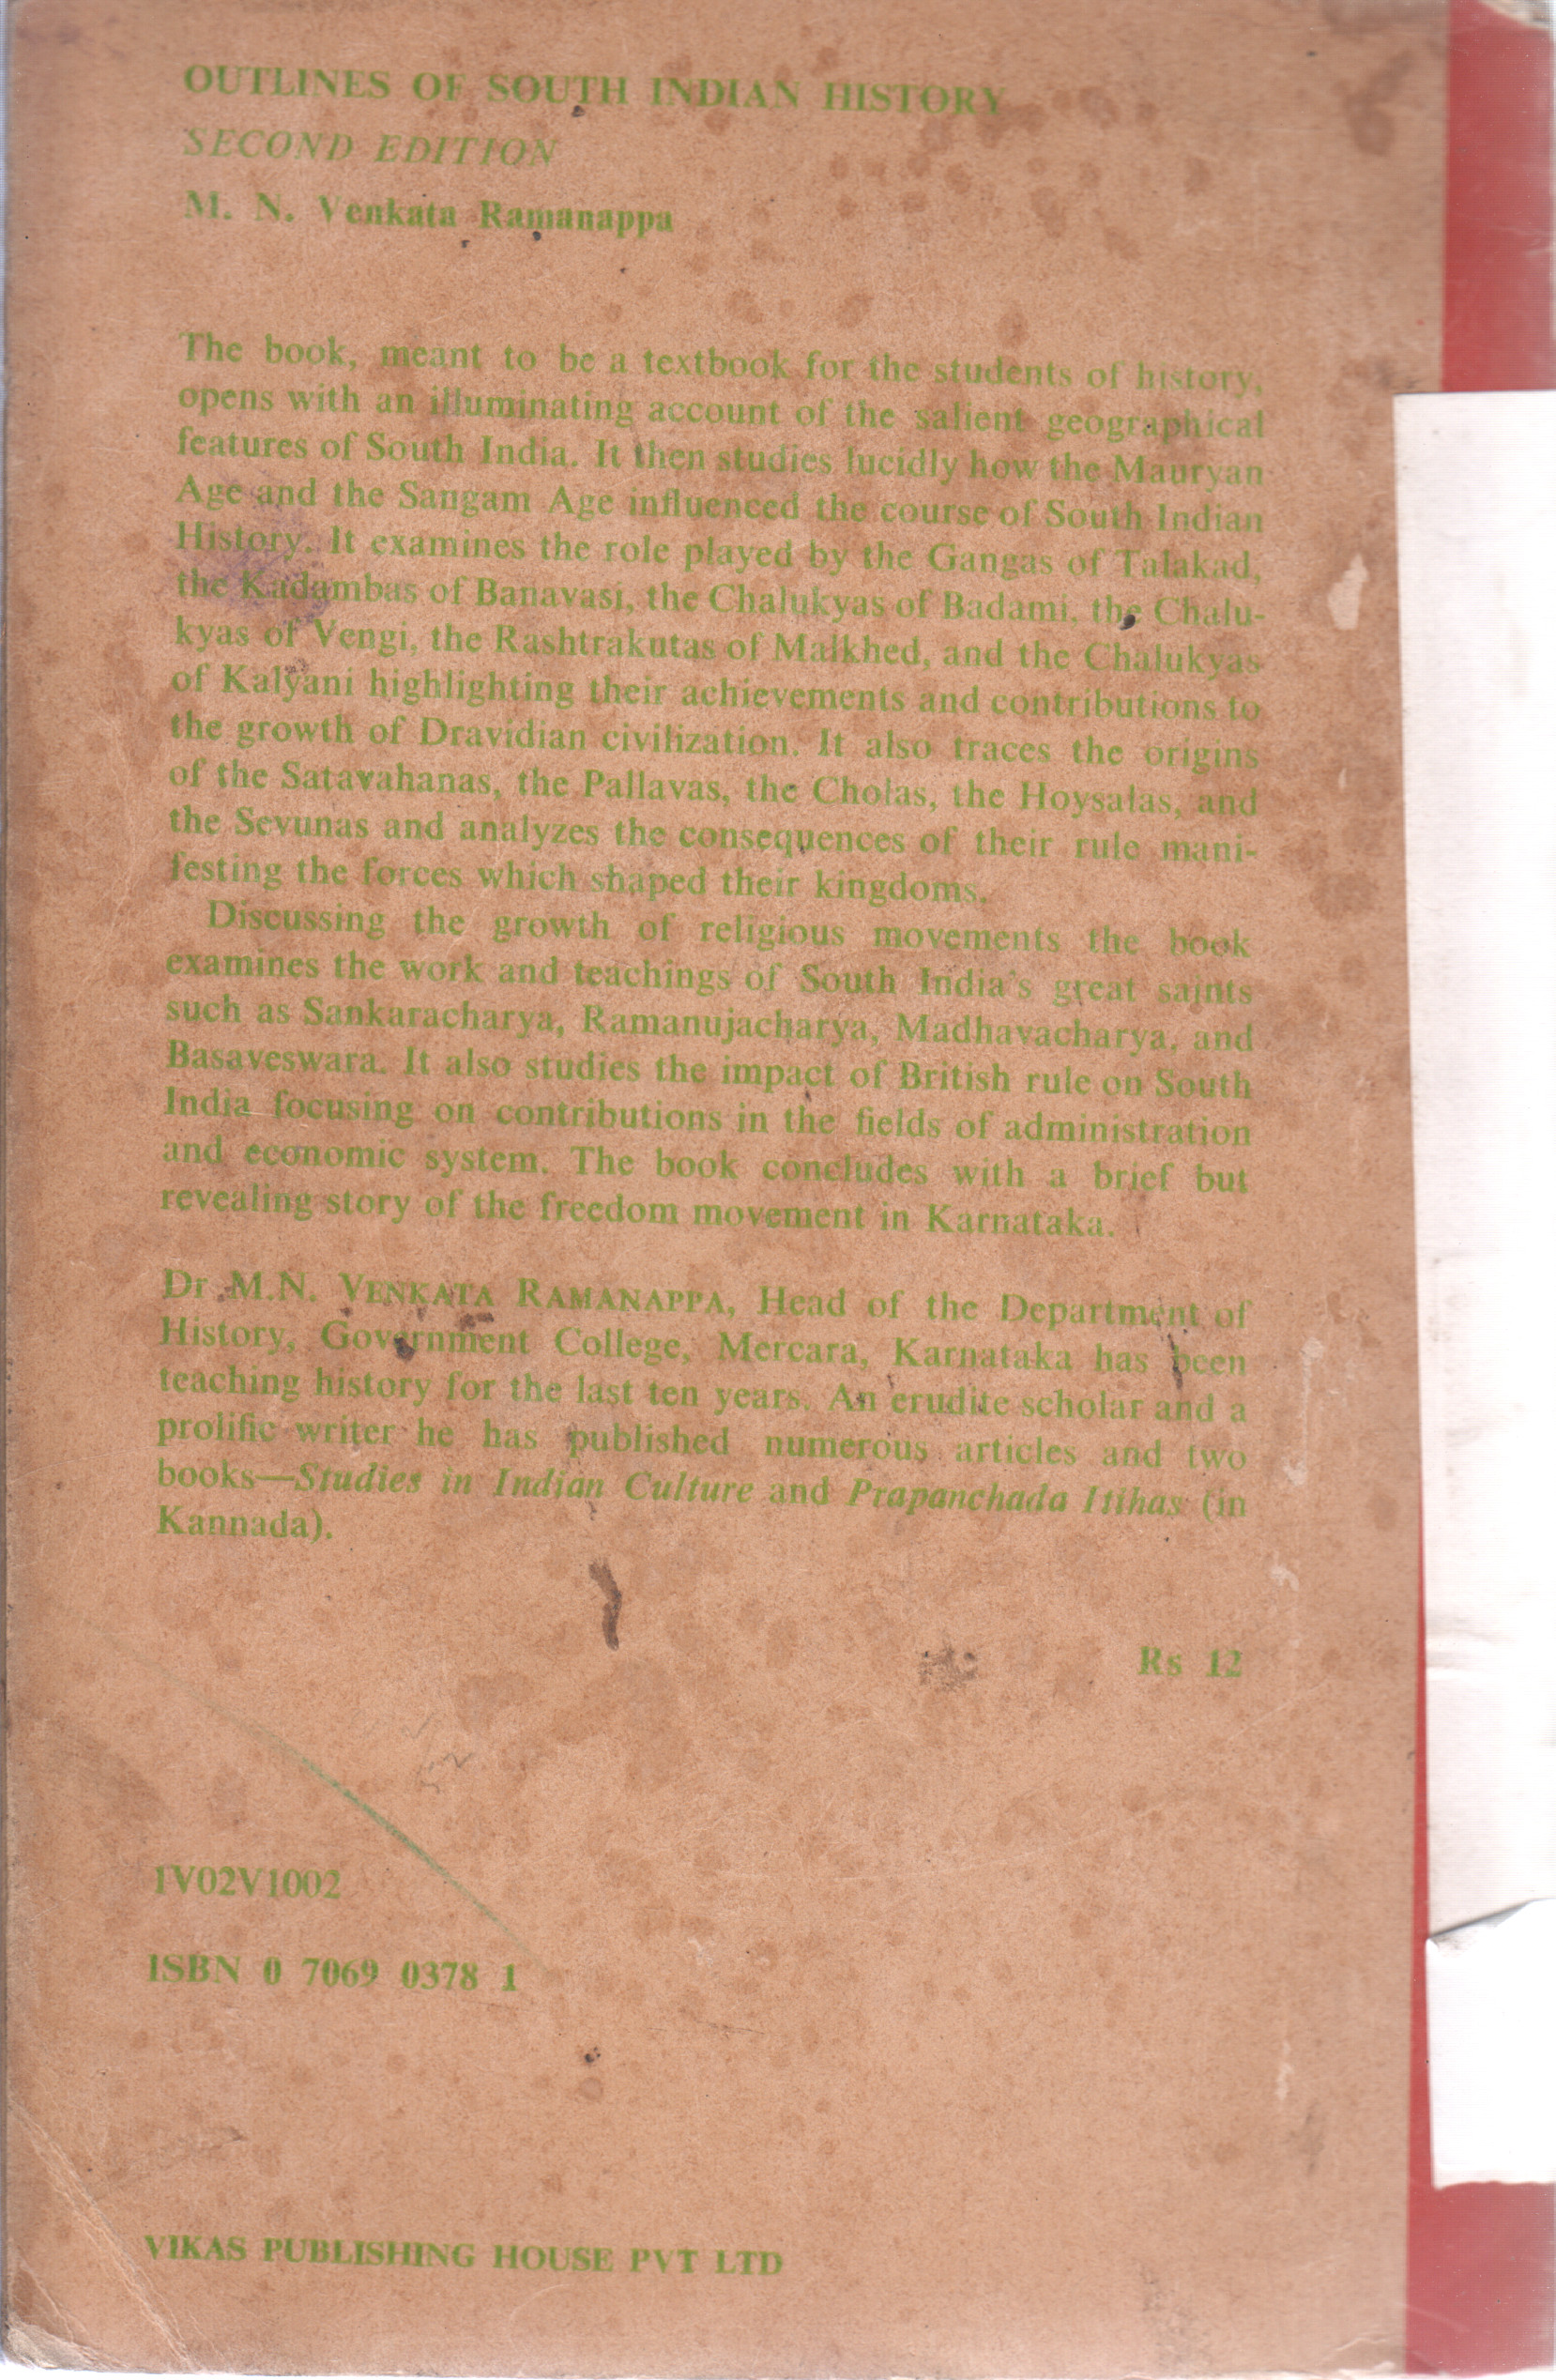 OUTLINES OF SOUTH INDIAN HISTORY
SECOND EDITION
M. N. Venkata Ramanappa
The book, meant to be a textbook for the students of history,
opens with an illuminating account of the salient geographical
features of South India. It then studies lucidly how the Mauryan
Age and the Sangam Age influenced the course of South Indian
History. It examines the role played by the Gangas of Talakad,
the Kadambas of Banavasi, the Chalukyas of Badami, the Chalu-
kyas of Vengi, the Rashtrakutas of Malkhed, and the Chalukyas
of Kalyani highlighting their achievements and contributions to
the growth of Dravidian civilization. It also traces the origins
of the Satavahanas, the Pallavas, the Cholas, the Hoysalas, and
the Sevunas and analyzes the consequences of their rule mani-
festing the forces which shaped their kingdoms.
Discussing the growth of religious movements the book
examines the work and teachings of South India's great saints
such as Sankaracharya, Ramanujacharya, Madhavacharya, and
Basaveswara. It also studies the impact of British rule on South
India focusing on contributions in the fields of administration
and economic system. The book concludes with a brief but
revealing story of the freedom movement in Karnataka.
Dr M.N. VENKATA RAMANAPPA, Head of the Department of
History, Government College, Mercara, Karnataka has been
teaching history for the last ten years. An erudite scholar and a
prolific writer he has published numerous articles and two
books—Studies in Indian Culture and Prapanchada Itihas (in
Kannada).
Rs 12
1V02V1002
ISBN 0 7069 0378 1
VIKAS PUBLISHING HOUSE PVT LTD